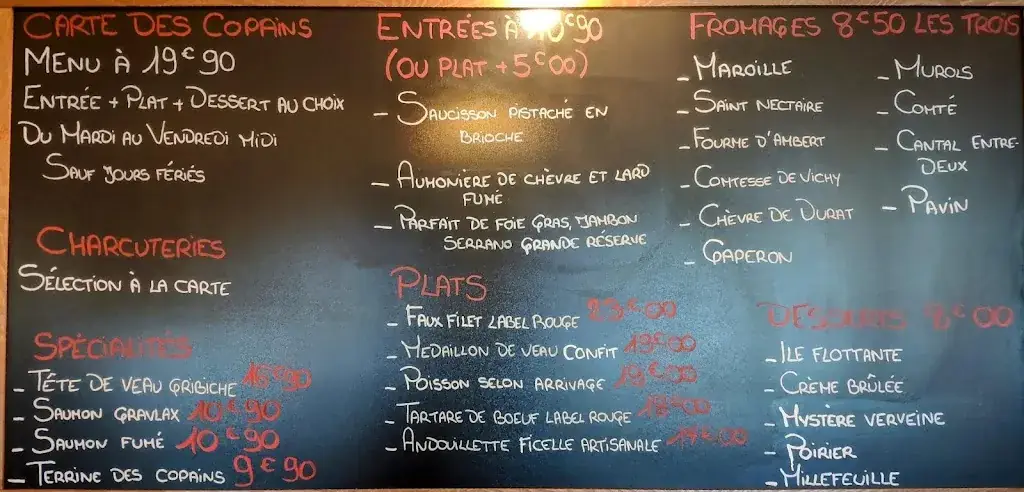 CARTE DES COPAINS
MENU À 19€90
ENTRÉE + PLAT + DESSERT AU CHOIX
DU MARDI AU VENDREDI MIDI
SAUF JOURS FÉRIÉS
CHARCUTERIES
SÉLECTION À LA CARTE
SPÉCIALITÉS
- TÉTE DE VEAU GRIBICHE 16€90
- SAUMON GRAVLAX 10€90
- SAUMON FUMÉ 10€90
- TERRINE DES COPAINS 9€90
ENTRÉES À 10€90
(OU PLAT +5€00)
- SAUCISSON PISTACHÉ EN
BRIOCHE
- AUMONIÈRE DE CHÈVRE ET LARD
FUMÉ
- PARFAIT DE FOIE GRAS, JAMBON
SERRANO GRANDE RÉSERVE
PLATS
- FAUX FILET LABEL ROUGE 23€00
- MEDAILLON DE VEAU CONFIT 19€00
- POISSON SELON ARRIVAGE 19€00
- TARTARE DE BOEUF LABEL ROUGE 18€00
- ANDOUILLETTE FICELLE ARTISANALE 19€00
FROMAGES 8€50 LES TROIS
- MAROILLE
- SAINT NECTAIRE
- FOURME D'AMBERT
- COMTESSE DE VICHY
- CHÈVRE DE DURAT
- GAPERON
- MUROLS
- COMTÉ
- CANTAL ENTRE-
DEUX
- PAVIN
DESSERTS 8€00
- ILE FLOTTANTE
- CRÈME BRÛLÉE
- MYSTÈRE VERVEINE
- POIRIER
- MILLEFEUILLE